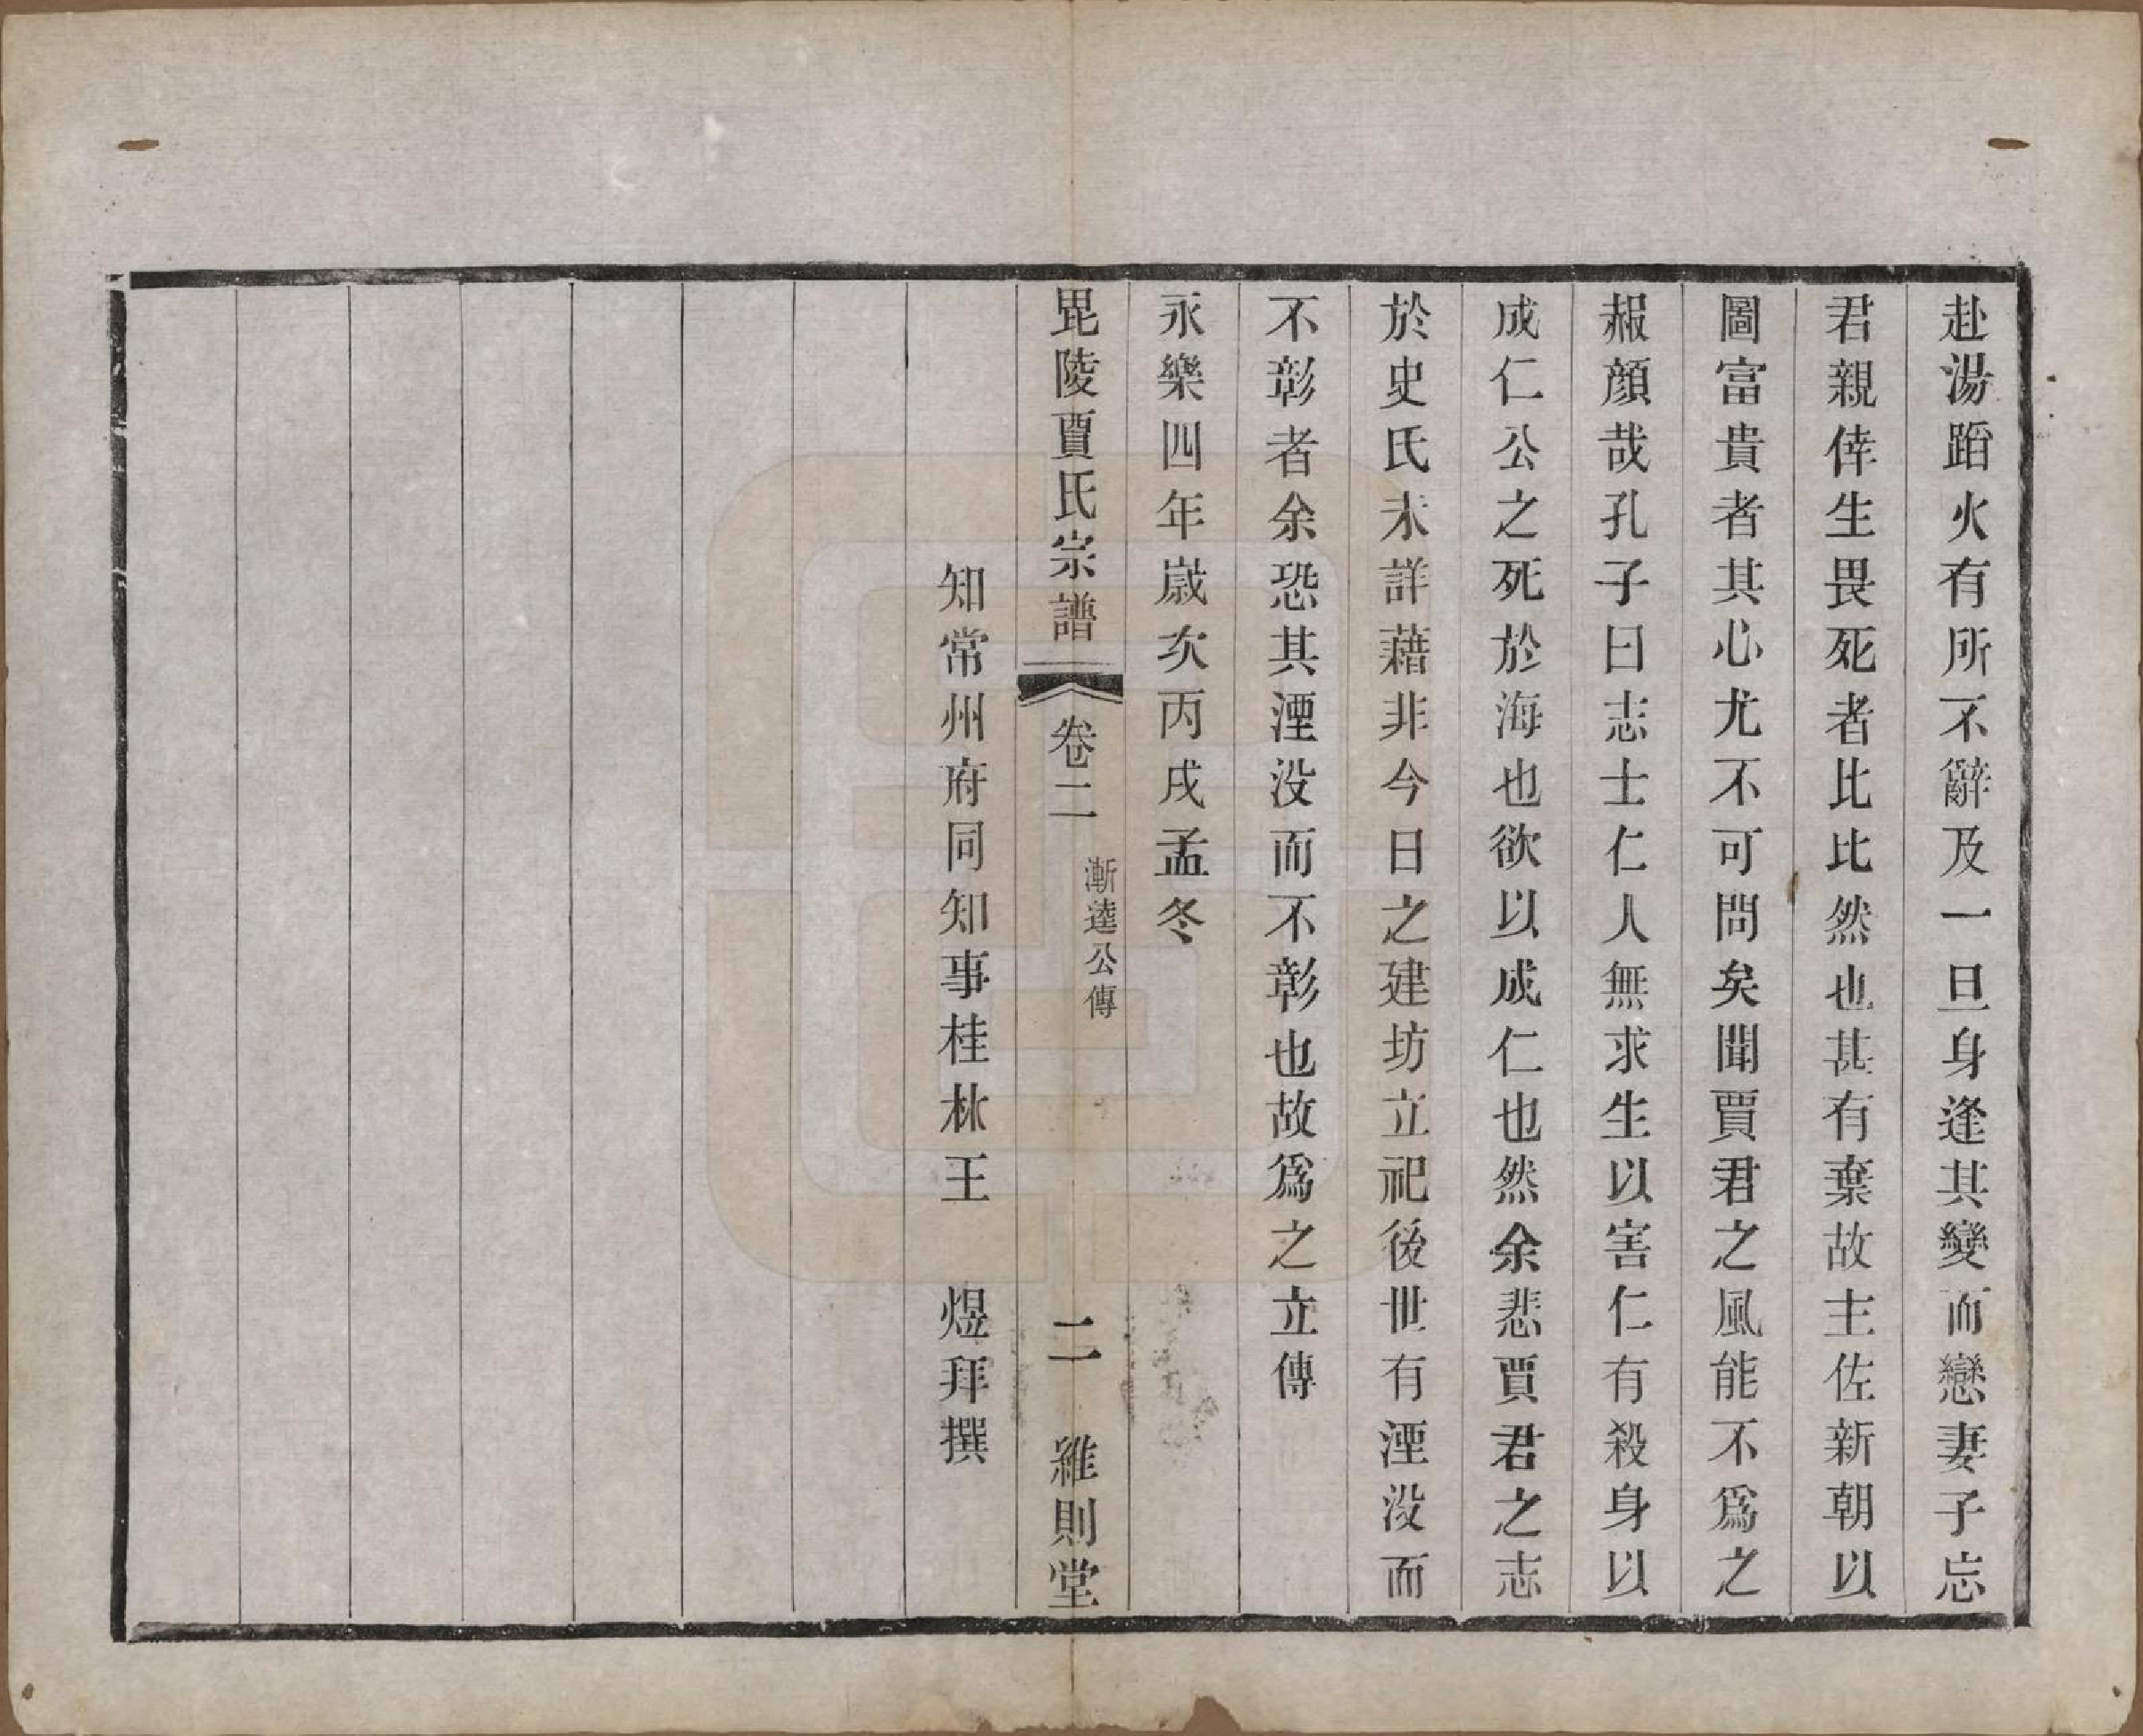 赴湯蹈火有所不辭及一旦身逢其變而戀妻子忘
君親倖生畏死者比比然也甚有棄故主佐新朝以
圖富貴者其心尤不可問矣聞賈君之風能不爲之
赧顔哉孔子曰志士仁人無求生以害仁有殺身以
成仁公之死於海也欲以成仁也然余悲賈君之志
於史氏未詳藉非今日之建坊立祀後世有湮没而
不彰者余恐其湮没而不彰也故爲之立傳
永樂四年嵗次丙戌孟冬
毘陵賈氏宗譜 卷二 漸逵公傳 二 維則堂
知常州府同知事桂林王 煜拜撰